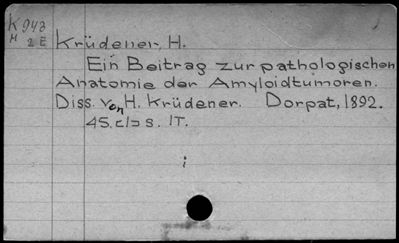 K 943
M 2 E
Krüdener, H.
Ein Beitrag zur pathologischen
Anatomie der Amyloidtumoren.
Diss. von H. Krüdener. Dorpat, 1892.
45. s. 1T.